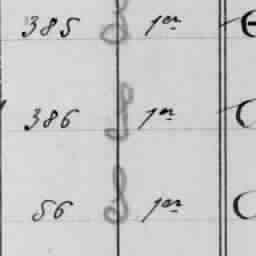 385 1er
386 1er
56 1er